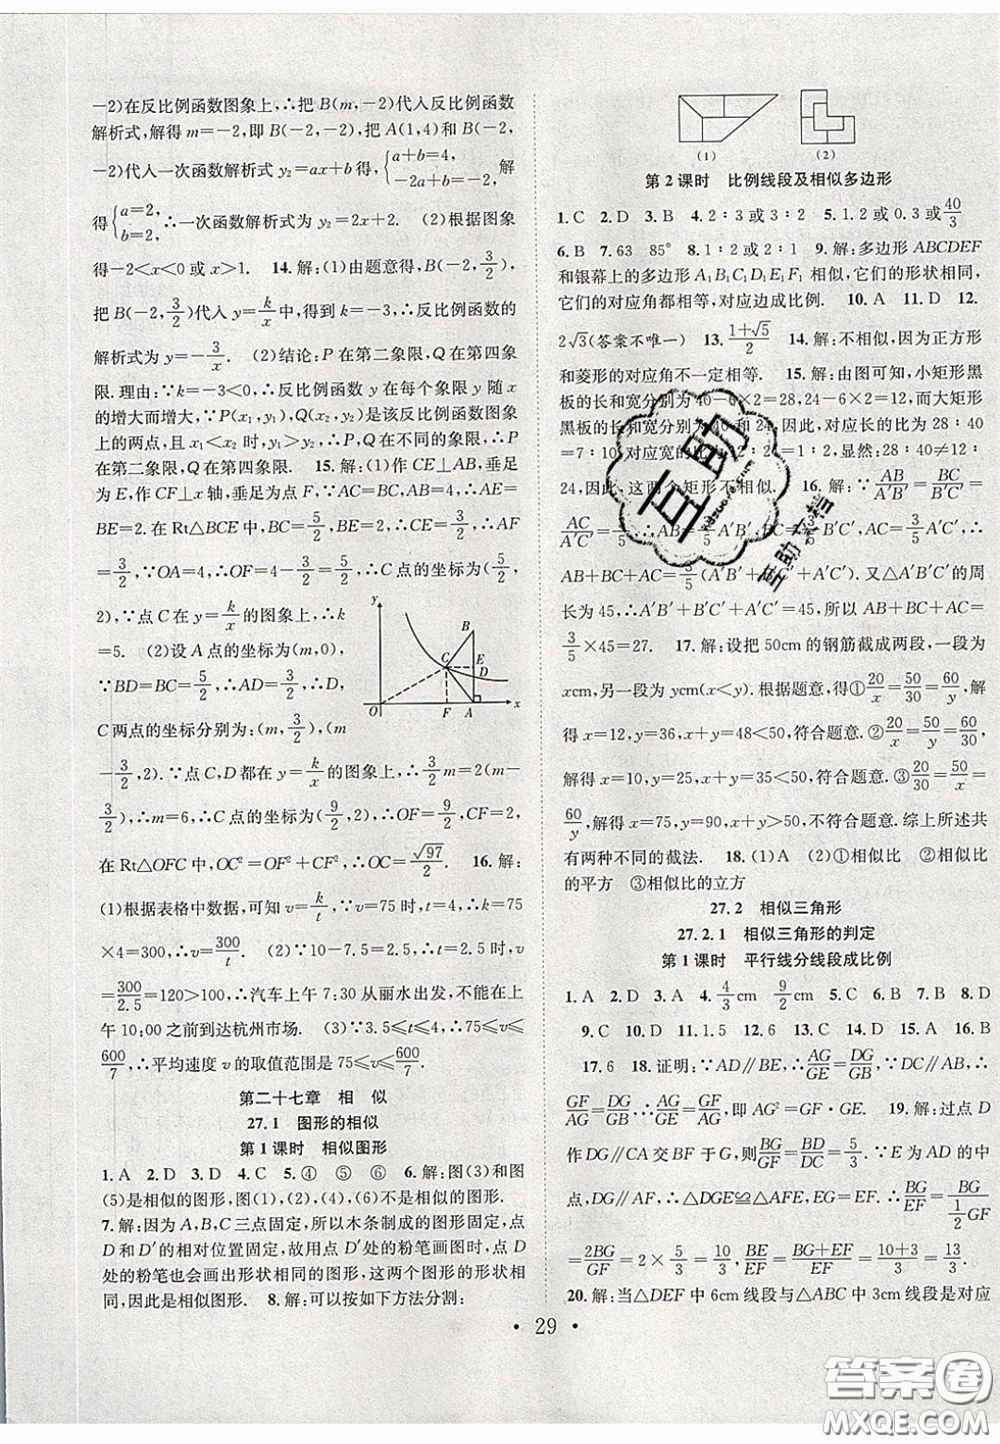 -2)在反比例函数图象上,∴把B(m,-2)代入反比例函数
解析式,解得m=-2,即B(-2,-2),把A(1,4)和B(-2,
-2)代入一次函数解析式y₂=ax+b得,{a+b=4, -2a+b=-2,解
得{a=2, b=2,∴一次函数解析式为y₂=2x+2. (2)根据图象
得-2<x<0或x>1. 14.解:(1)由题意得,B(-2,3/2),
把B(-2,3/2)代入y=k/x中,得到k=-3,∴反比例函数的
解析式为y=-3/x. (2)结论:P在第二象限,Q在第四象
限.理由:∵k=-3<0,∴反比例函数y在每个象限y随x
的增大而增大,∵P(x₁,y₁),Q(x₂,y₂)是该反比例函数图象
上的两点,且x₁<x₂时,y₁>y₂,∴P,Q在不同的象限,∴P
在第二象限,Q在第四象限. 15.解:(1)作CE⊥AB,垂足
为E,作CF⊥x轴,垂足为点F,∵AC=BC,AB=4,∴AE=
BE=2.在Rt△BCE中,BC=5/2,BE=2,∴CE=3/2,∴AF=
3/2,∵OA=4,∴OF=4-3/2=5/2,∴C点的坐标为(5/2,
2),∵点C在y=k/x的图象上,∴k
=5. (2)设A点的坐标为(m,0),
∵BD=BC=5/2,∴AD=3/2,∴D,
C两点的坐标分别为:(m,3/2),(m
-3/2,2).∵点C,D都在y=k/x的图象上,∴3/2m=2(m-
3/2),∴m=6,∴C点的坐标为(9/2,2),∴OF=9/2,CF=2,
在Rt△OFC中,OC²=OF²+CF²,∴OC=√97/2. 16.解:
(1)根据表格中数据,可知v=k/t,∵v=75时,t=4,∴k=75
×4=300,∴v=300/t. (2)∵10-7.5=2.5,∴t=2.5时,v=
300/2.5=120>100,∴汽车上午7:30从丽水出发,不能在上
午10:00之前到达杭州市场. (3)∵3.5≤t≤4,∴75≤v≤
600/7,∴平均速度v的取值范围是75≤v≤600/7.
第二十七章 相 似
27.1 图形的相似
第1课时 相似图形
1.A 2.D 3.D 4.C 5.④ ⑤ ⑥ 6.解:图(3)和图
(5)是相似的图形,图(1),(2),(4),(6)不是相似的图形.
7.解:因为A,B,C三点固定,所以木条制成的图形固定,点
D和D′的相对位置固定,故用点D′处的粉笔画图时,点
D处的粉笔也会画出形状相同的图形,这两个图形的形状相
同,因此是相似图形. 8.解:可以按如下方法分割:
y
B
C
E
D
O
F
A
x
(1) (2)
第2课时 比例线段及相似多边形
1.C 2.D 3.B 4.2∶3或3∶2 5.1.2或0.3或40/3
6.B 7.63 85° 8.1∶2或2∶1 9.解:多边形ABCDEF
和银幕上的多边形A₁B₁C₁D₁E₁F₁相似,它们的形状相同,
它们的对应角都相等,对应边成比例. 10.A 11.D 12.
2√3(答案不唯一) 13.(1+√5)/2 14.解:不相似,因为正方形
和菱形的对应角不一定相等. 15.解:由图可知,小矩形黑
板的长和宽分别为40-6×2=28,24-6×2=12,而大矩形
黑板的长和宽分别为40和24,因此,对应长的比为28∶40
=7∶10,对应宽的比为12∶24=1∶2,显然:28∶40≠12∶
24,因此,这两个矩形不相似. 16.解:∵AB/A′B′=BC/B′C′=
AC/A′C′=3/5,∴AB=3/5A′B′,BC=3/5B′C′,AC=3/5A′C′,∴
AB+BC+AC=3/5(A′B′+B′C′+A′C′).又△A′B′C′的周
长为45,∴A′B′+B′C′+A′C′=45,所以AB+BC+AC=
3/5×45=27. 17.解:设把50cm的钢筋截成两段,一段为
xcm,另一段为ycm(x<y).根据题意,得①20/x=50/30=60/y,解
得x=12,y=36,x+y=48<50,符合题意.②20/x=50/y=60/30,
解得x=10,y=25,x+y=35<50,符合题意.③20/30=50/x=
60/y,解得x=75,y=90,x+y>50,不符合题意.综上所述共
有两种不同的截法. 18.(1)A (2)①相似比 ②相似比
的平方 ③相似比的立方
27.2 相似三角形
27.2.1 相似三角形的判定
第1课时 平行线分线段成比例
1.A 2.D 3.A 4.4/3cm 9/2cm 5.A 6.C 7.B 8.D
9.C 10.D 11.1.5 12.6 13.C 14.C 15.A 16.B
17.6 18.证明:∵AD∥BE,∴AG/GE=GF/GB.∵DC∥AB,∴
GF/AG=AG/GE,∴GF/AG=AG/GE,即AG²=GF·GE. 19.解:过点D
作DG∥CA交BF于点G,则BG/GF=BD/DC=5/3.∵E为AD的中
点,DG∥AF,∴△DGE≌△AFE,EG=EF,∴BG/EF=BG/(1/2GF)
=2BG/GF=2×5/3=10/3,BE/EF=BG+EF/EF=10+3/3=13/3.
20.解:当△DEF中6cm线段与△ABC中3cm线段是对应
• 29 •
互助
互助文档
答案圈
MXQE.COM